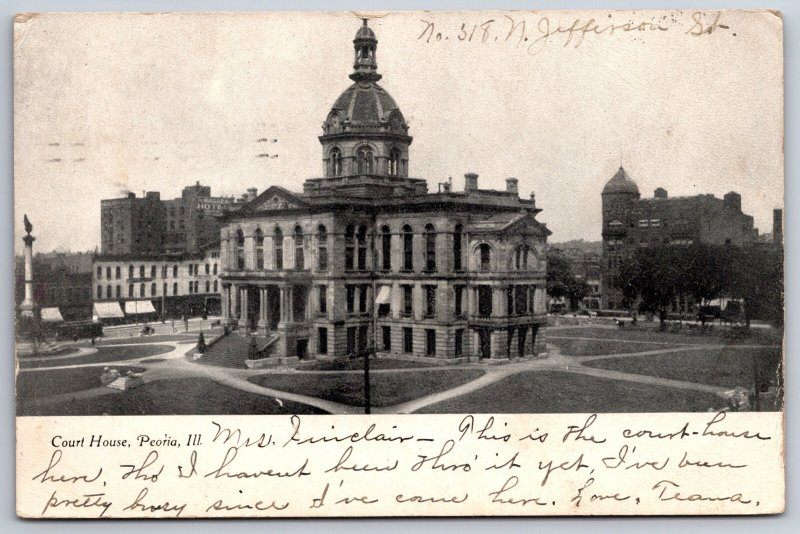 No. 318. N. Jefferson St.
Court House, Peoria, Ill. Mrs. Sinclair – This is the court-house
here, tho' I haven't been thro' it yet, I've been
pretty busy since I've come here. Love, Teana.